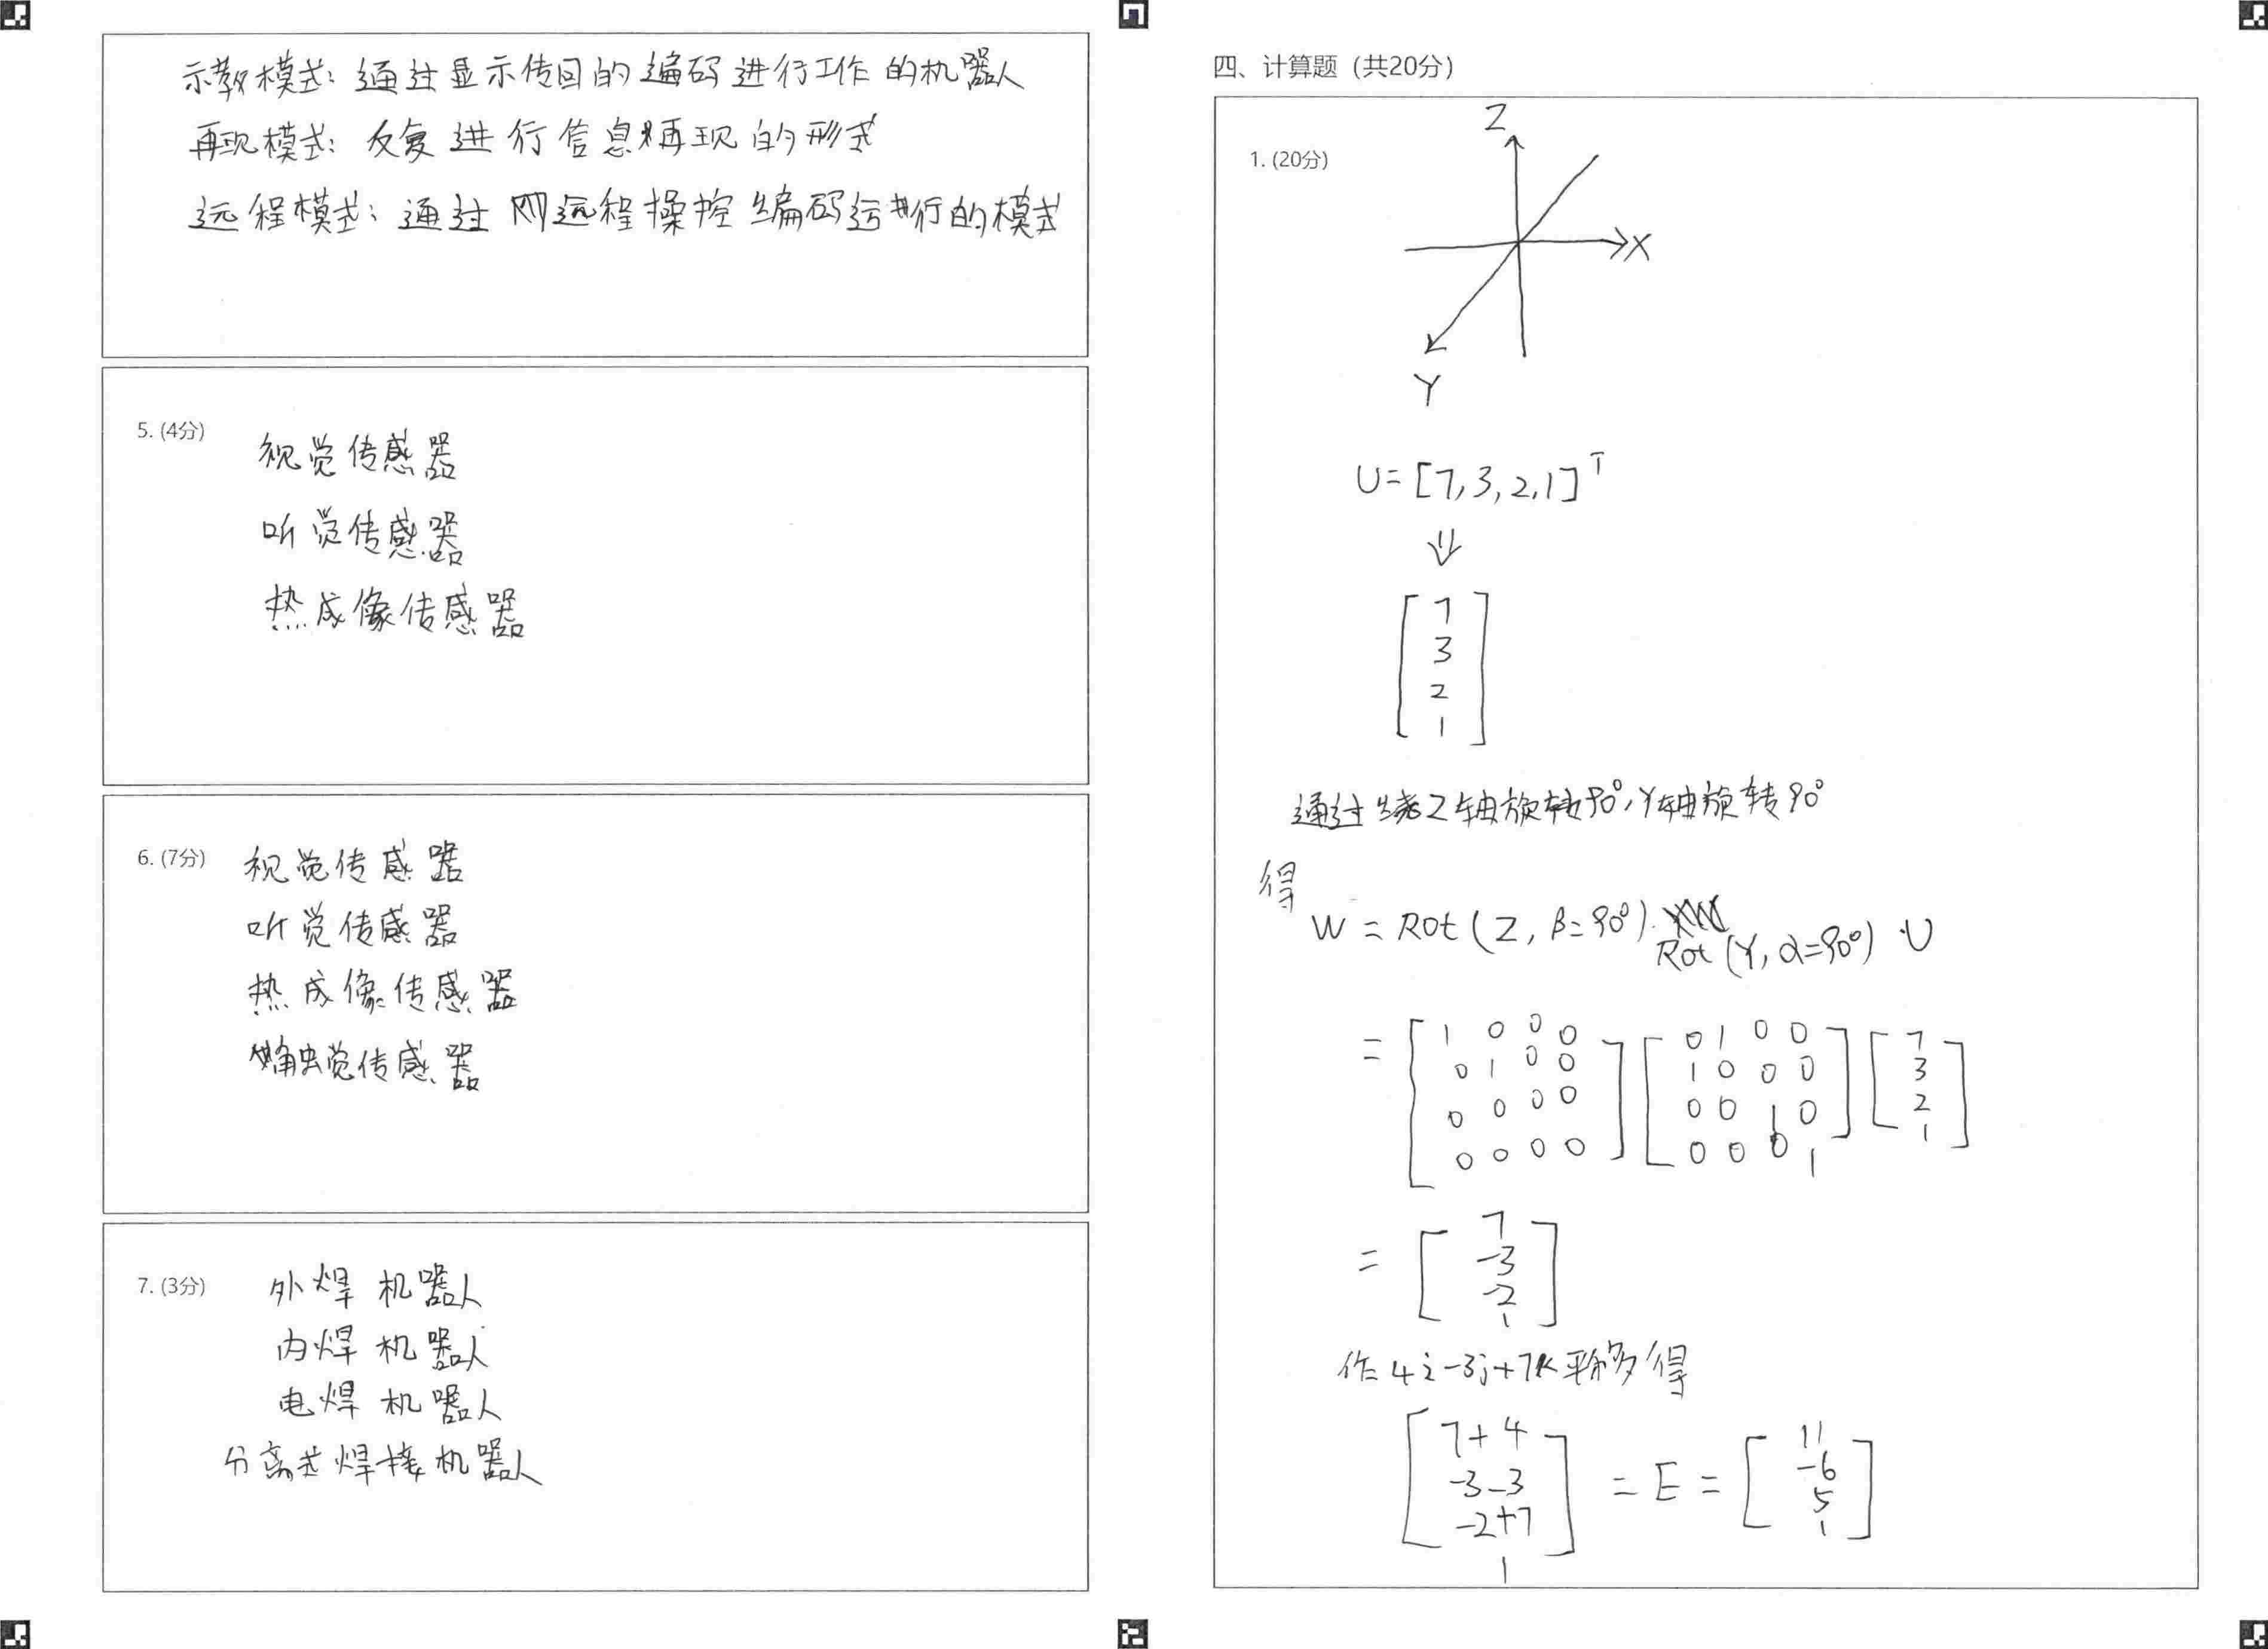 示教模式：通过显示传回的编码进行工作的机器人
再现模式：反复进行信息再现的形式
远程模式：通过网远程操控编码运行的模式
5. (4分)
视觉传感器
听觉传感器
热成像传感器
6. (7分)
视觉传感器
听觉传感器
热成像传感器
触觉传感器
7. (3分)
外焊机器人
内焊机器人
电焊机器人
分离式焊接机器人
四、计算题（共20分）
1. (20分)
Z
X
Y
U=[7,3,2,1]ᵀ
⇓
7
3
2
1
通过绕Z轴旋转90°,Y轴旋转90°
得
W = Rot(Z, β=90°)·Rot(Y, α=90°)·U
= [1 0 0 0] [0 1 0 0] [7]
[0 1 0 0] [1 0 0 0] [3]
[0 0 0 0] [0 0 1 0] [2]
[0 0 0 0] [0 0 0 1] [1]
=
7
-3
-2
1
作4i-3j+7k平移得
[7+4] = E = [11]
[-3-3] [-6]
[-2+7] [5]
[1] [1]